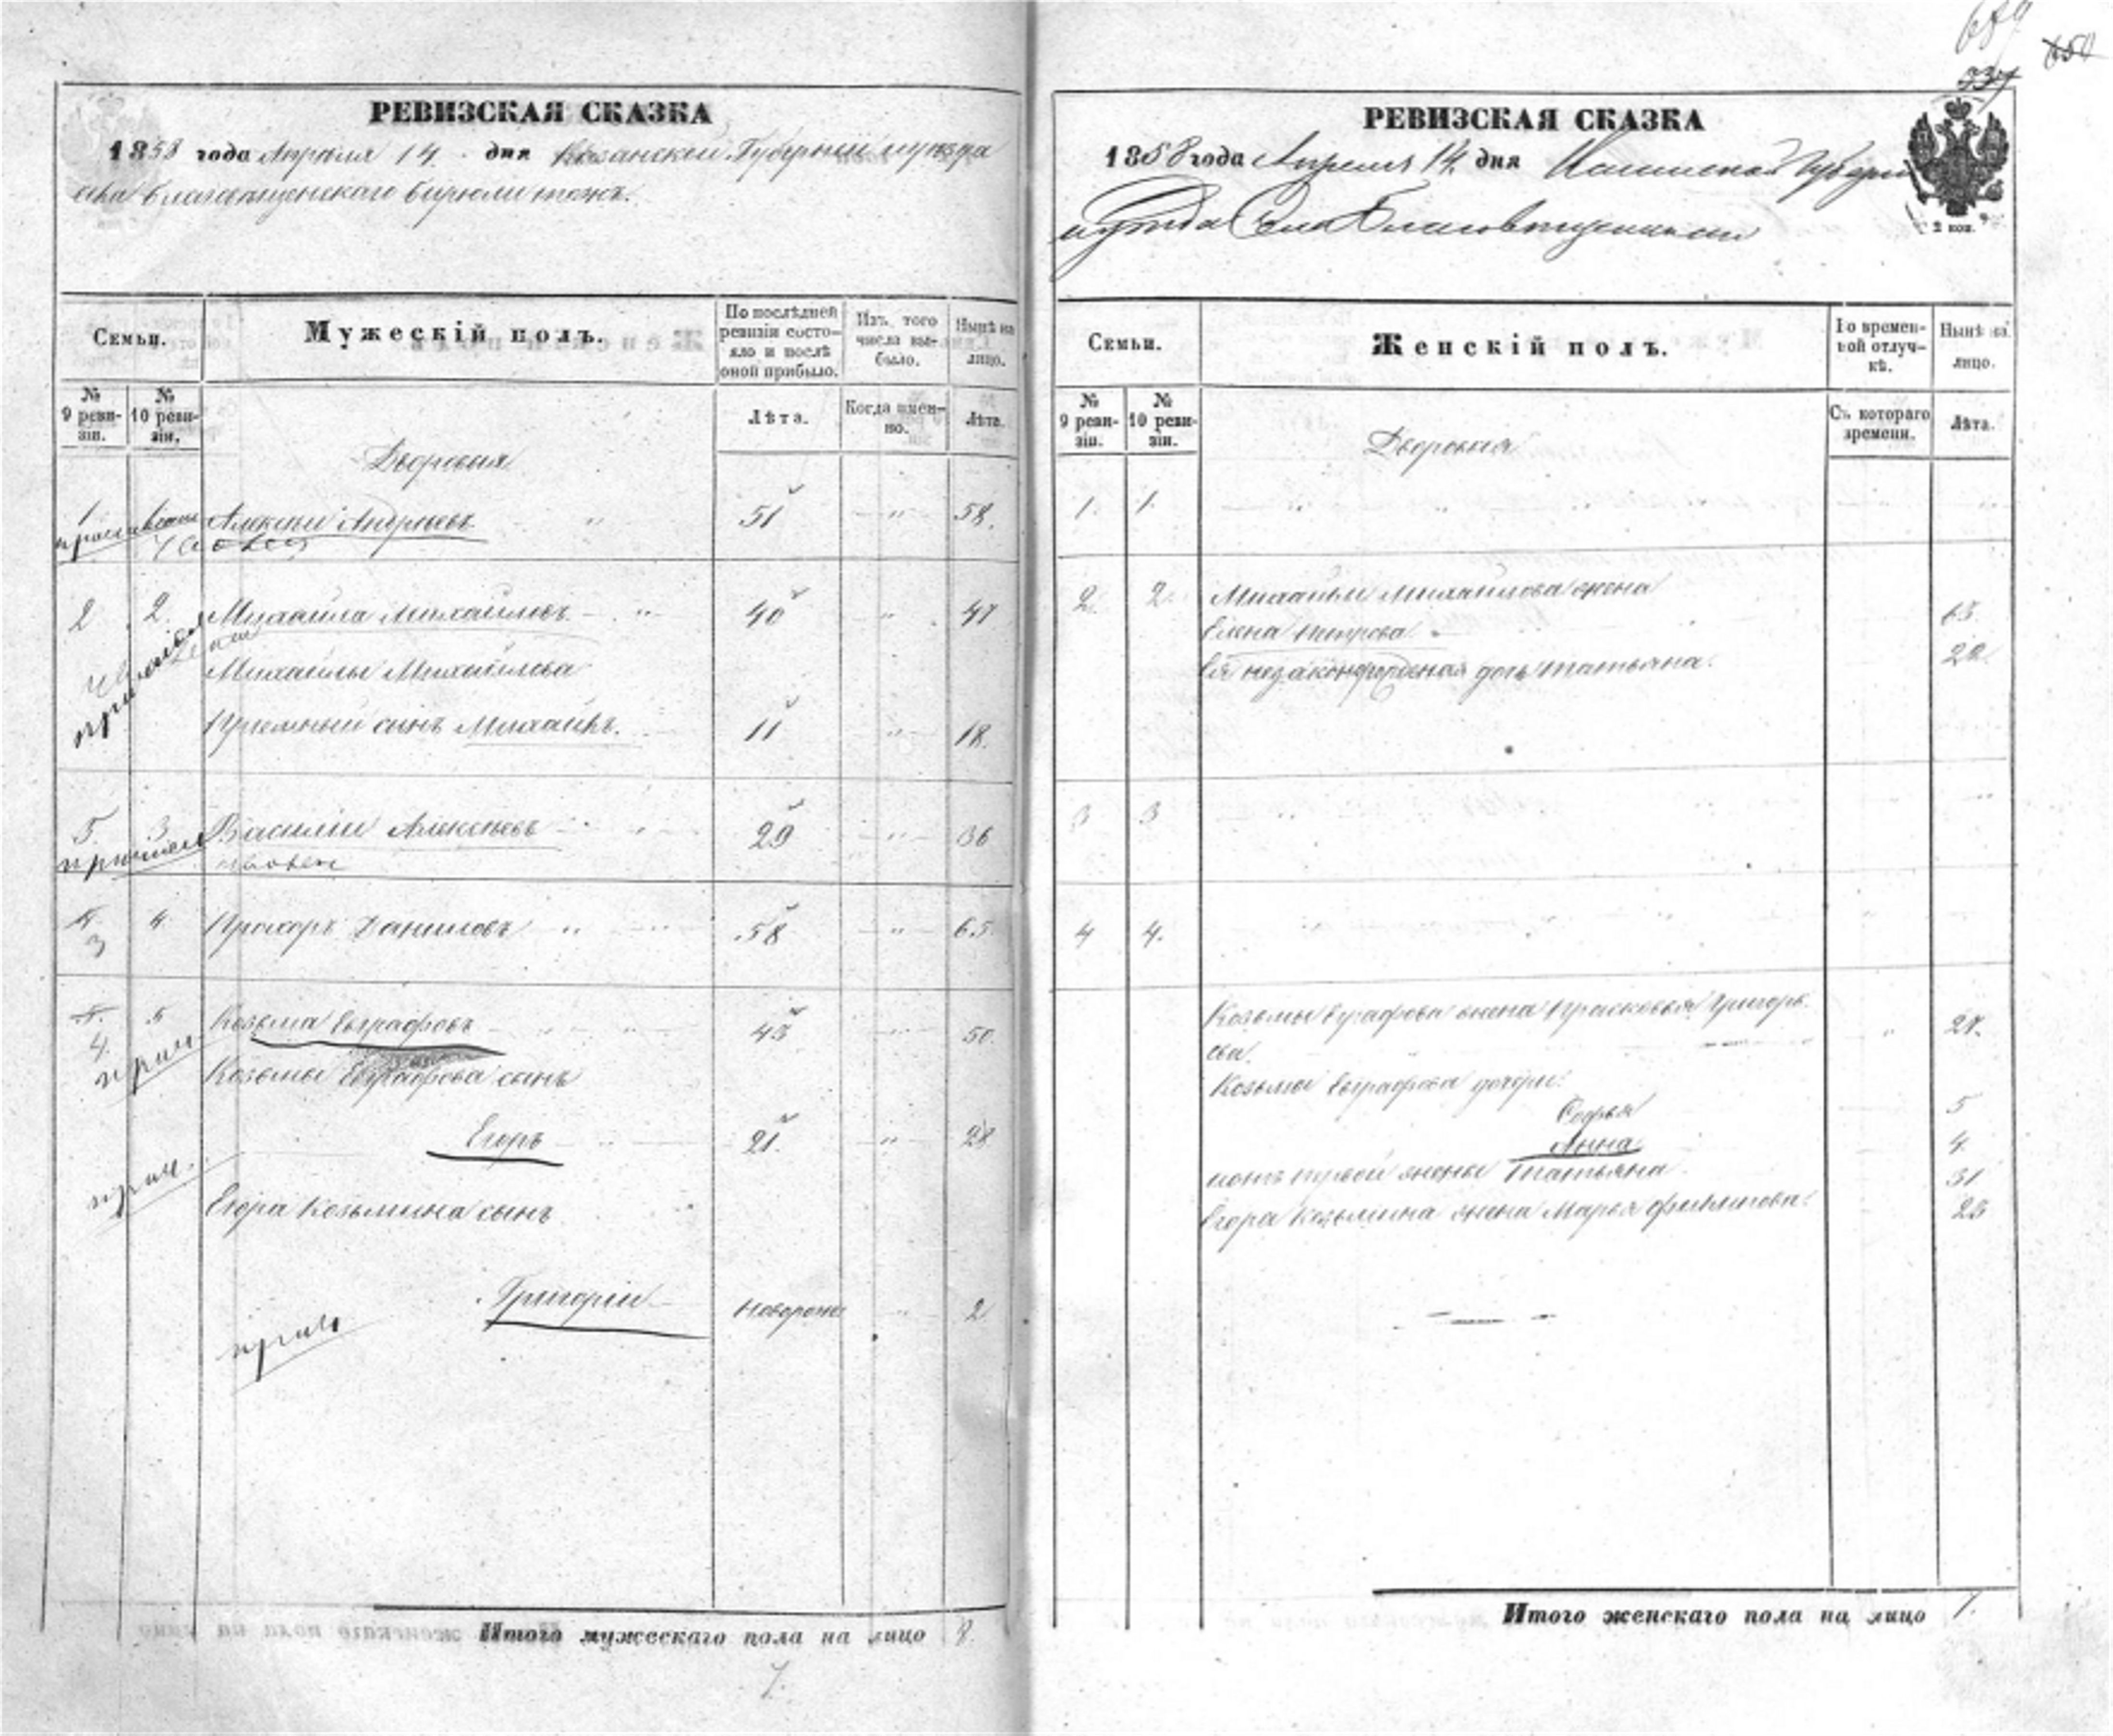 РЕВИЗСКАЯ СКАЗКА
1858 года Апреля 14 дня Казанской Губернии и уезда
села Благовещенскаго Бирюли тожъ.
Семьи.
Мужескій полъ.
По послѣдней ревизіи состояло и послѣ оной прибыло.
Изъ того числа выбыло.
Нынѣ на лицо.
№ 9 ревизіи.
№ 10 ревизіи.
Лѣта.
Когда именно.
Лѣта.
Дворовыя
1 1 Алексѣй Андреевъ " 51 " 58.
человек
2 2. Михайла Михайловъ " 40 " 47
Михайлы Михайлова
Пріемный сынъ Михайлъ. 11 " 18.
5 3 Василий Алексѣевъ " 29 " 36
человек
3 4 Прохоръ Даниловъ " 58 " 65.
4. 5 Козьма Евграфовъ " 43 " 50.
прим.
Козьмы Евграфова сынъ
Егоръ 21. " 28
прим.
Егора Козьмина сынъ
Григорій Новорож " 2
прим
Итого мужескаго пола на лицо 8.
7.
689
650
337
РЕВИЗСКАЯ СКАЗКА
1858 года Апреля 14. дня Казанской Губерни
и уезда Села Благовещенскаго
2 коп.
Семьи.
Женскій полъ.
Во временной отлучкѣ.
Нынѣ на лицо.
№ 9 ревизіи.
№ 10 ревизіи.
Съ котораго времени.
Лѣта.
Дворовыя
1. 1.
2. 2. Михайлы Михайлова жена
Елена Петрова 63.
Ея незаконнорожденая дочь Татьяна.
3 3
4 4.
Козьмы Евграфова жена Прасковья Григорь
ева. " 28.
Козьмы Евграфова дочери:
Софья 5
Анна 4.
отъ первой жены Татьяна 31
Егора Козьмина жена Марья Филипова.
Итого женскаго пола на лицо 7.